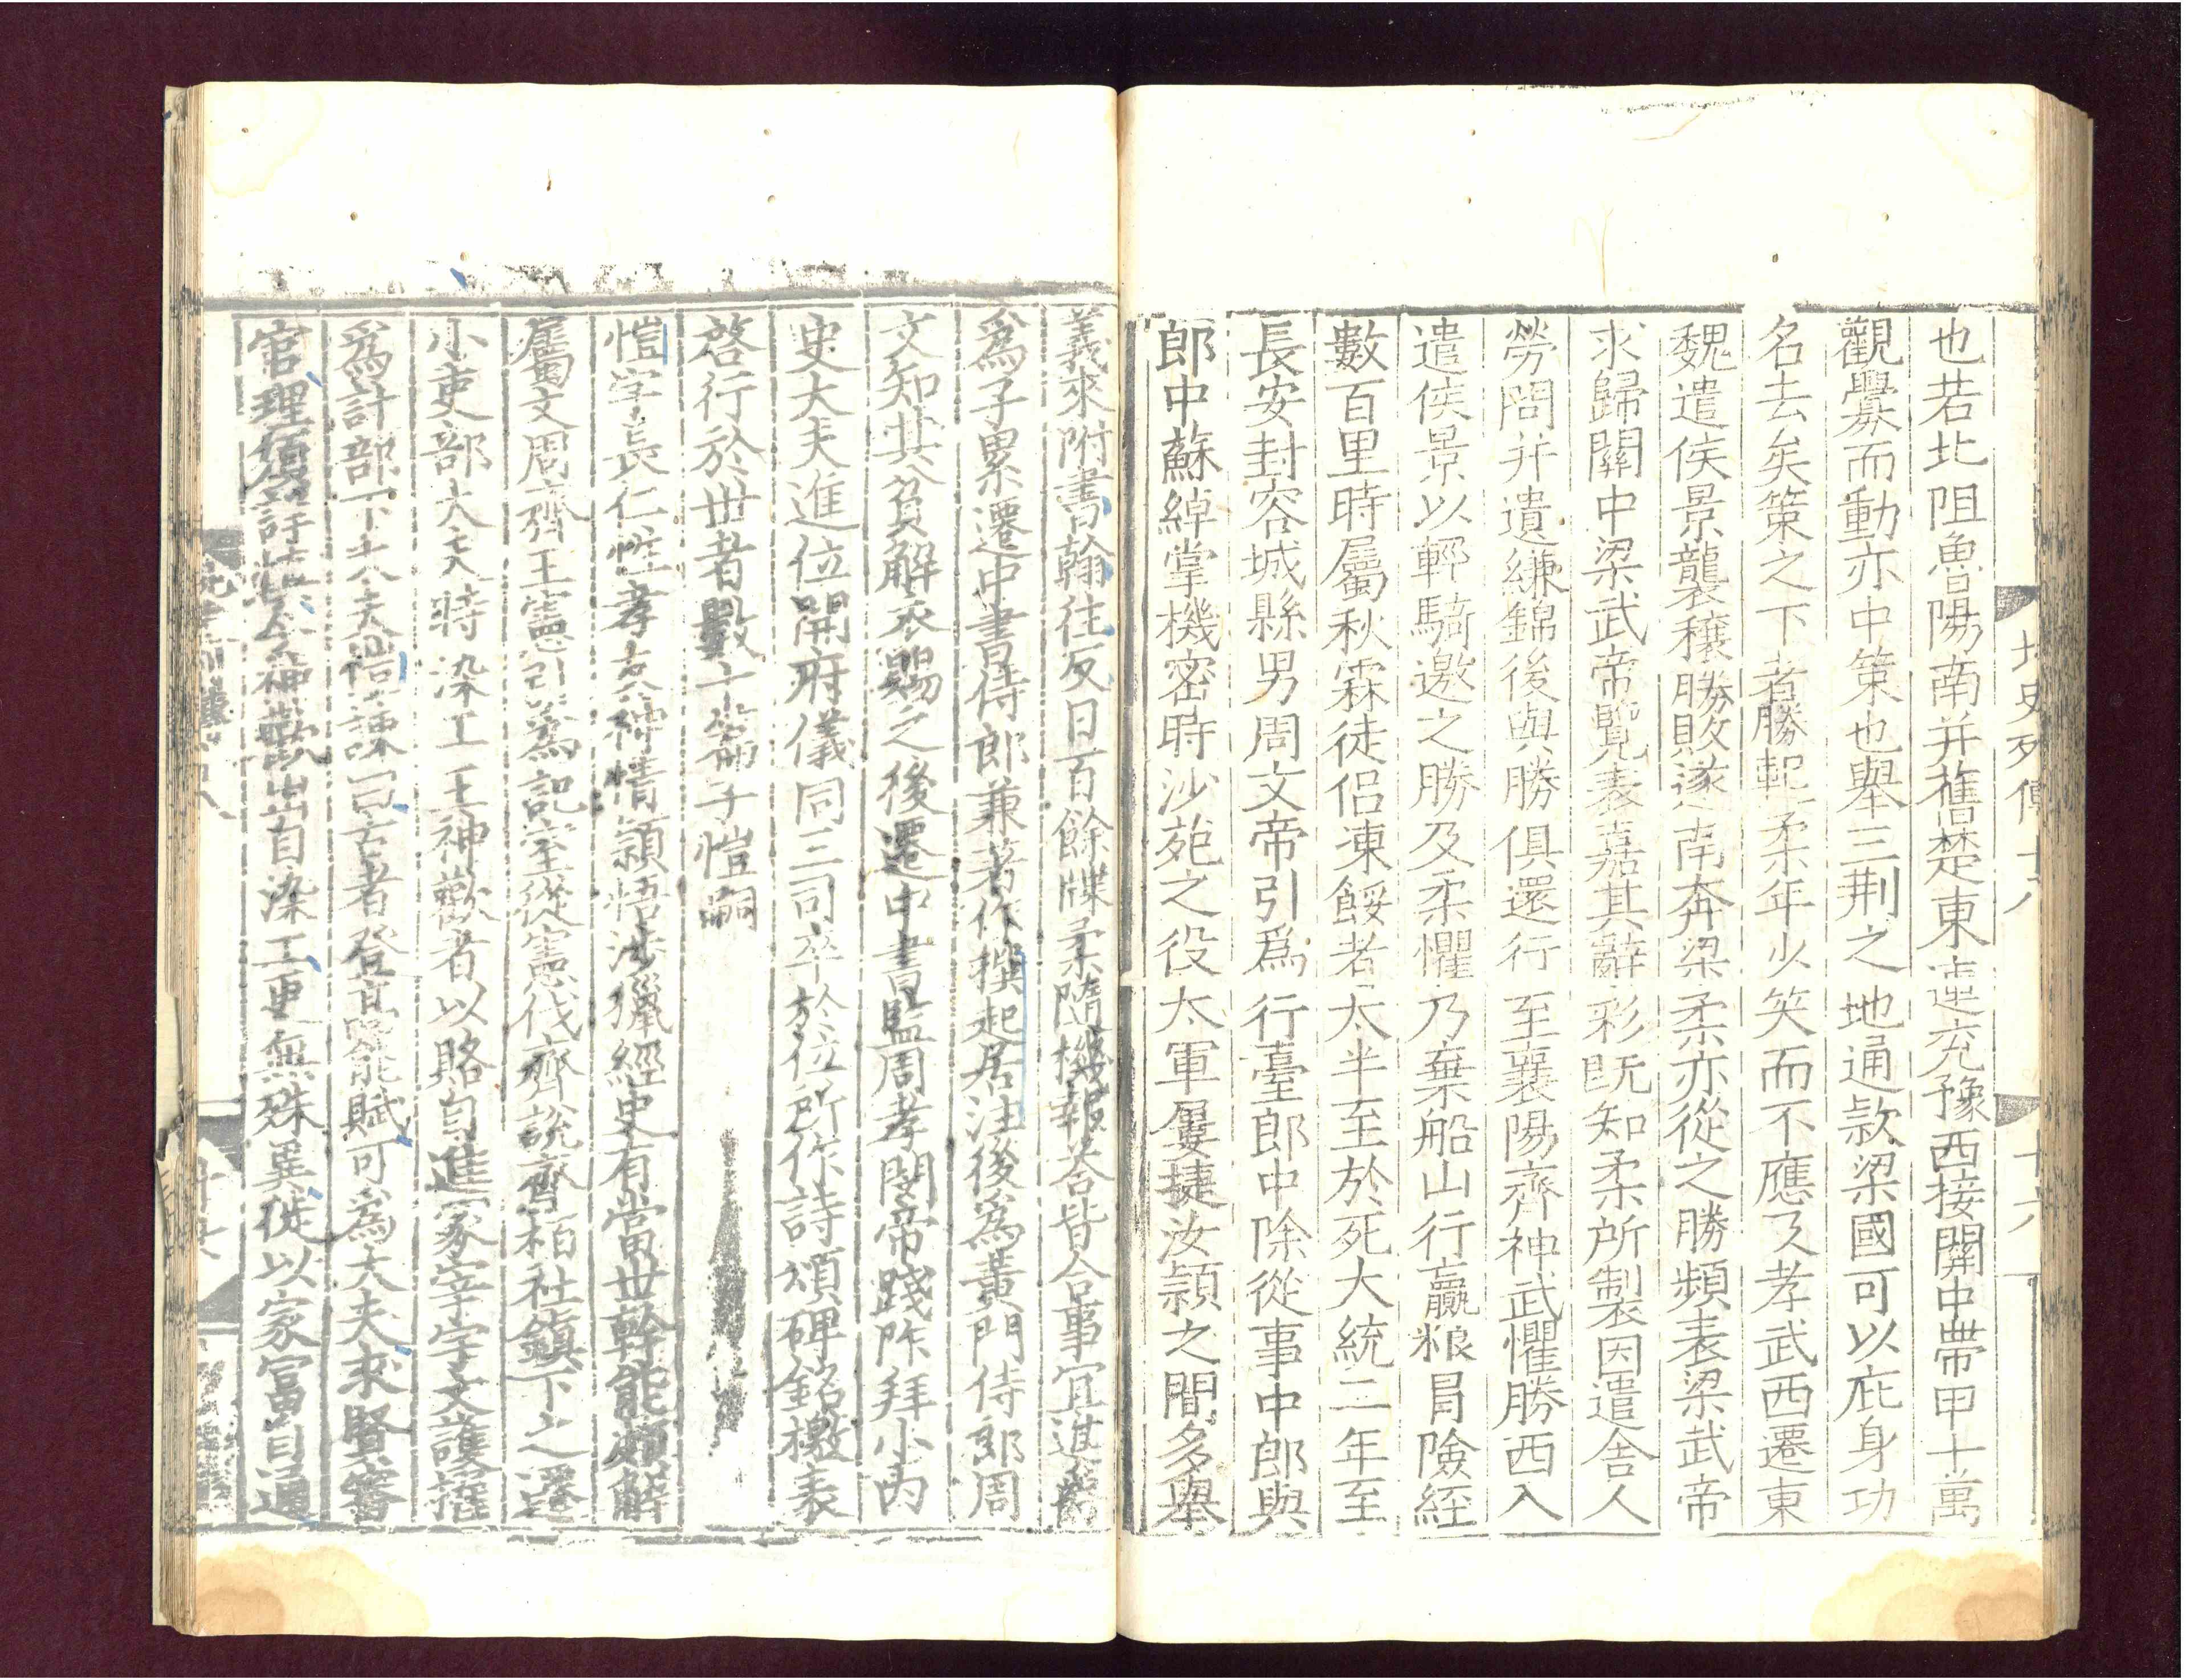 北史列傳十八
十六
也若北阻魯陽南并舊楚東連兗豫西接關中帶甲十萬
觀釁而動亦中策也舉三荆之地通款梁國可以庇身功
名去矣策之下者勝輕柔年少笑而不應及孝武西遷東
魏遣侯景襲穰勝敗遂南奔梁柔亦從之勝頻表梁武帝
求歸關中梁武帝覽表嘉其辭彩既知柔所製因遣舍人
勞問并遺縑錦後與勝俱還行至襄陽齊神武懼勝西入
遣侯景以輕騎邀之勝及柔懼乃棄船山行贏粮冒險經
數百里時屬秋霖徒侶凍餒者太半至於死大統二年至
長安封容城縣男周文帝引爲行臺郎中除從事中郎與
郎中蘇綽掌機密時沙苑之役大軍屢捷汝潁之間多舉
義來附書翰往反日百餘牒柔隨機報荅皆合事宜進爵
爲子累遷中書侍郎兼著作撰起居注後爲黃門侍郎周
文知其貧解衣賜之後遷中書監周孝閔帝踐阼拜小內
史大夫進位開府儀同三司卒於位所作詩頌碑銘檄表
啓行於世者數十篇子愷嗣
愷字長仁性孝友神情潁悟涉獵經史有當世幹能頗解
屬文周齊王憲引爲記室從憲伐齊說齊柏社鎮下之遷
小吏部大夫時染工王神歡者以賂自進冢宰宇文護擢
爲計部下大夫愷諫曰古者登高能賦可爲大夫求賢審
官理須詳慎今神歡出自染工更無殊異徒以家富自通